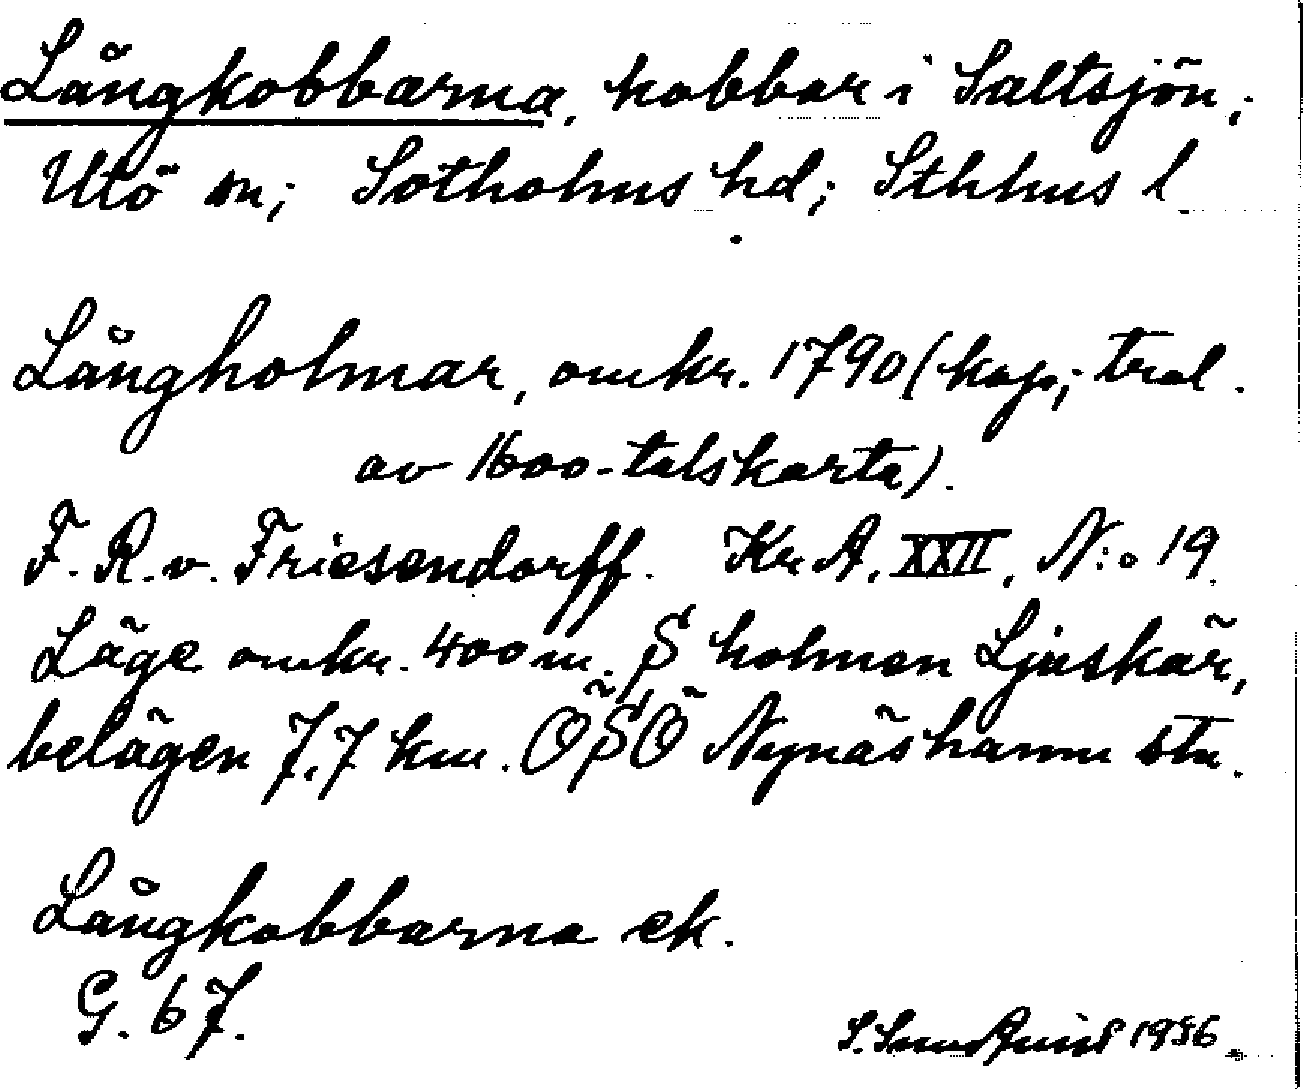 Långkobbarna, kobbar i Saltsjön;
Utö sn; Sotholms hd; Sthlms l
Långholmar, omkr. 1790 (kop; trol.
av 1600-talskarta).
F. R. v. Friesendorff. Kr A. XXII, N:o 19.
Läge omkr. 400 m. S holmen Ljuskär,
belägen 7,7 km. ÖSÖ Nynäshamn stn.
Långkobbarna ek.
G. 67.
S. Sundquist 1936